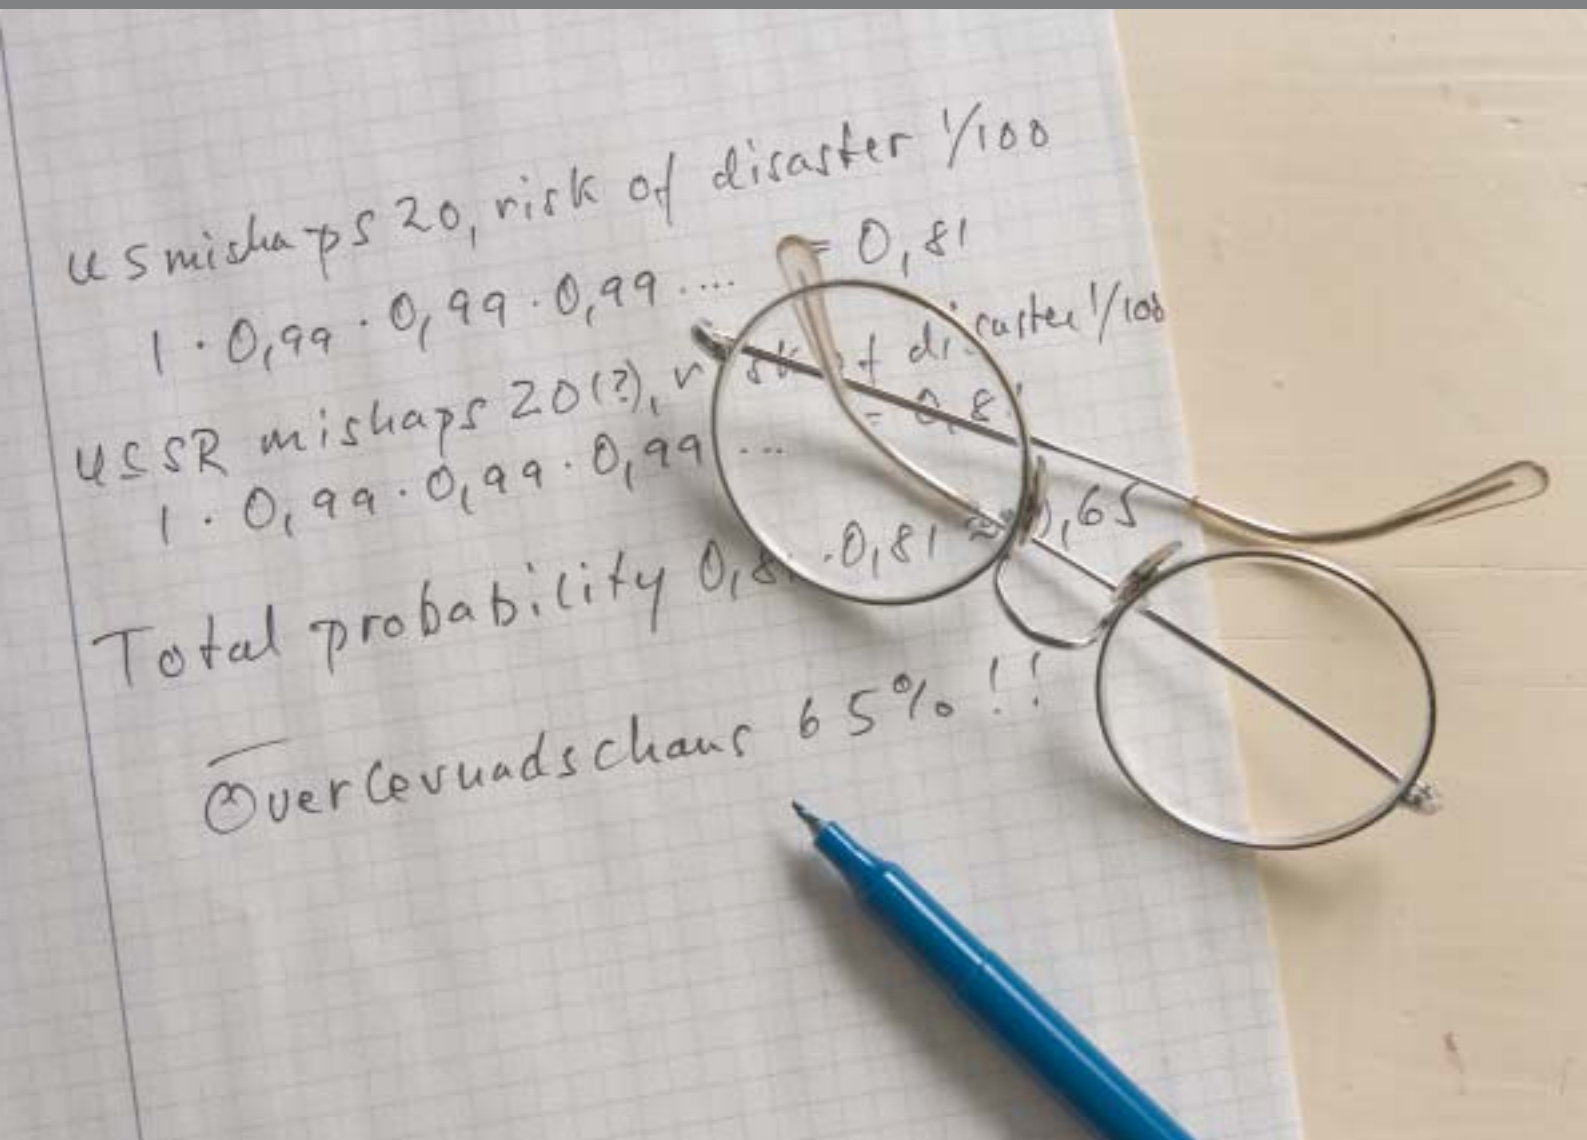 US mishaps 20, risk of disaster 1/100
1 · 0,99 · 0,99 · 0,99 .... = 0,81
USSR mishaps 20(?), risk of disaster 1/100
1 · 0,99 · 0,99 · 0,99 ... = 0,81
Total probability 0,81 · 0,81 ≈ 0,65
Överlevnadschans 65% !!